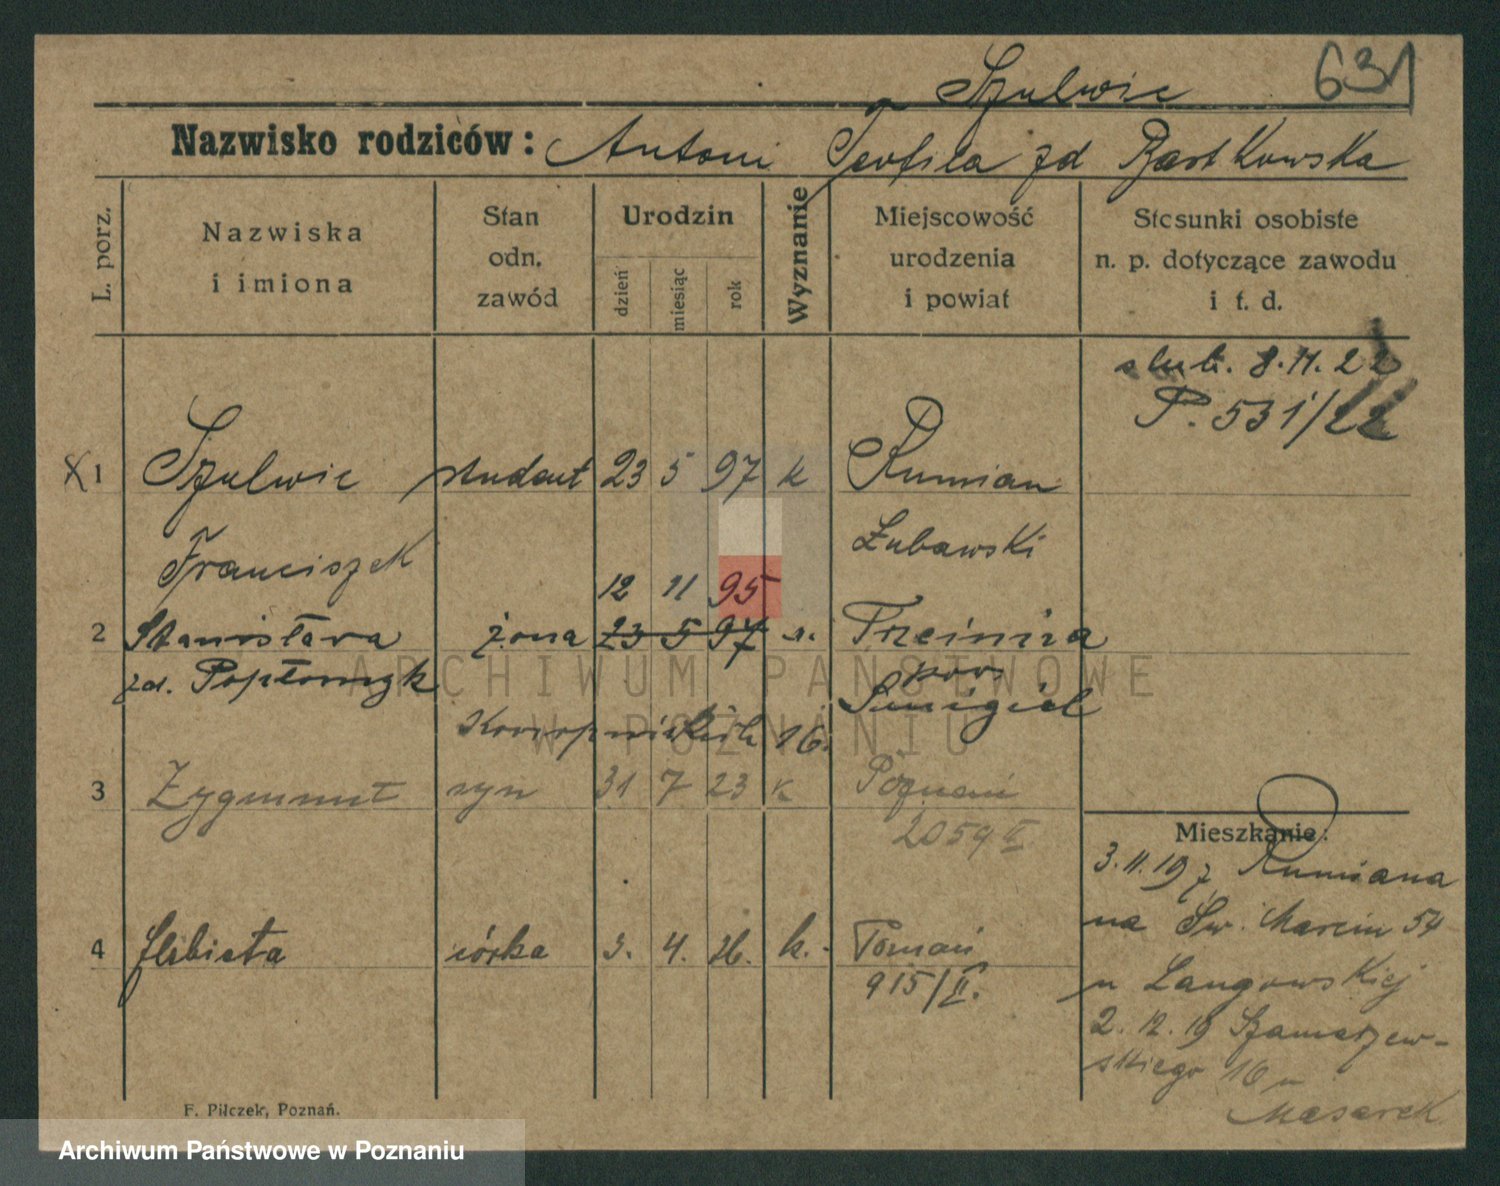 Szulwic 631
Nazwisko rodziców: Antoni Teofila zd Bartkowska
L. porz.
Nazwiska
i imiona
Stan
odn.
zawód
Urodzin
dzień
miesiąc
rok
Wyznanie
Miejscowość
urodzenia
i powiat
Stosunki osobiste
n. p. dotyczące zawodu
i t. d.
ślub. 8.11.22
P. 531/22
X 1 Szulwic student 23 5 97 k Rumian
Franciszek Lubawski
12 11 95
2 Stanisława żona 23 5 97 Trzcinica
zd. pow
Śmigiel
16.
3 Zygmunt syn 31 7 23 k Poznań
2059 II
Mieszkanie:
3.11.19 z Rumiana
na Św. Marcin 54
4 Elżbieta córka 3. 4. 26. k. Poznań
915/II.
u Langowskiej
2.12.19 Szamarzew-
skiego 16 u
Masarek
F. Pilczek, Poznań.
ARCHIWUM PAŃSTWOWE
W POZNANIU
Archiwum Państwowe w Poznaniu